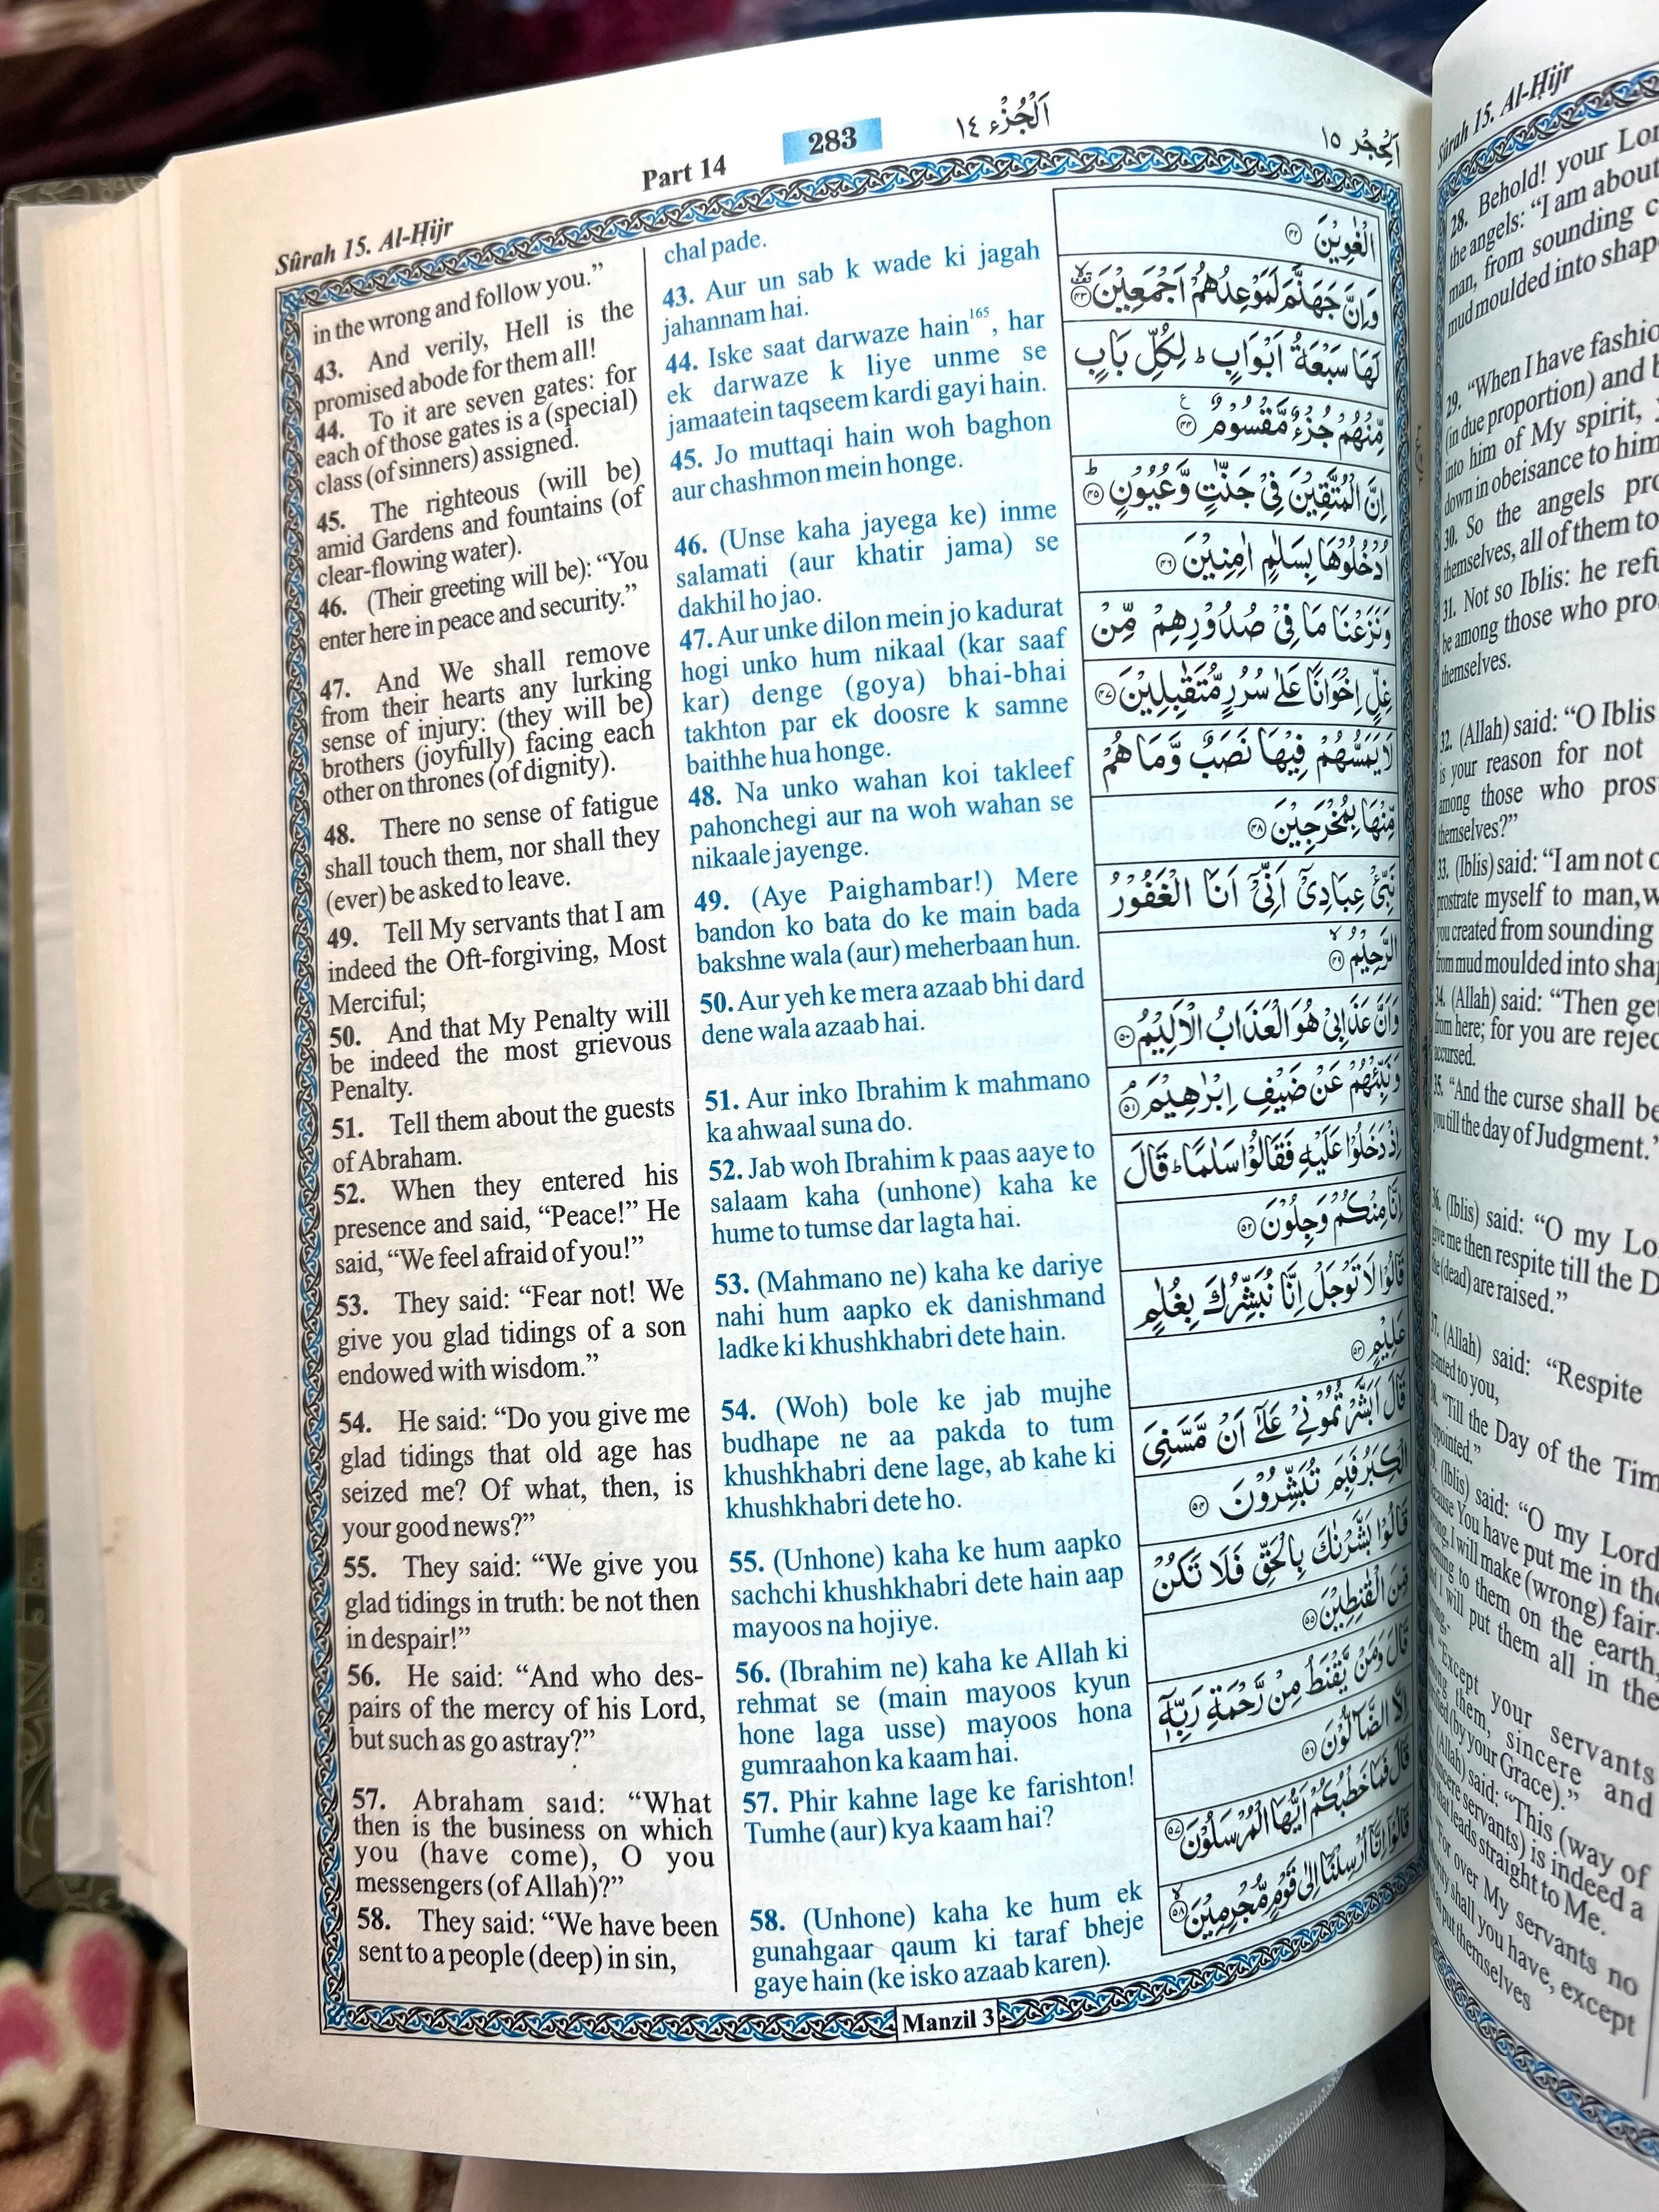 Sûrah 15. Al-Ḥijr
Part 14
283
اَلْجُزْء ١٤
اَلْحِجْر ١٥
in the wrong and follow you.”
43. And verily, Hell is the
promised abode for them all!
44. To it are seven gates: for
each of those gates is a (special)
class (of sinners) assigned.
45. The righteous (will be)
amid Gardens and fountains (of
clear-flowing water).
46. (Their greeting will be): “You
enter here in peace and security.”
47. And We shall remove
from their hearts any lurking
sense of injury: (they will be)
brothers (joyfully) facing each
other on thrones (of dignity).
48. There no sense of fatigue
shall touch them, nor shall they
(ever) be asked to leave.
49. Tell My servants that I am
indeed the Oft-forgiving, Most
Merciful;
50. And that My Penalty will
be indeed the most grievous
Penalty.
51. Tell them about the guests
of Abraham.
52. When they entered his
presence and said, “Peace!” He
said, “We feel afraid of you!”
53. They said: “Fear not! We
give you glad tidings of a son
endowed with wisdom.”
54. He said: “Do you give me
glad tidings that old age has
seized me? Of what, then, is
your good news?”
55. They said: “We give you
glad tidings in truth: be not then
in despair!”
56. He said: “And who des-
pairs of the mercy of his Lord,
but such as go astray?”
57. Abraham said: “What
then is the business on which
you (have come), O you
messengers (of Allah)?”
58. They said: “We have been
sent to a people (deep) in sin,
chal pade.
43. Aur un sab k wade ki jagah
jahannam hai.
44. Iske saat darwaze hain165, har
ek darwaze k liye unme se
jamaatein taqseem kardi gayi hain.
45. Jo muttaqi hain woh baghon
aur chashmon mein honge.
46. (Unse kaha jayega ke) inme
salamati (aur khatir jama) se
dakhil ho jao.
47. Aur unke dilon mein jo kadurat
hogi unko hum nikaal (kar saaf
kar) denge (goya) bhai-bhai
takhton par ek doosre k samne
baithhe hua honge.
48. Na unko wahan koi takleef
pahonchegi aur na woh wahan se
nikaale jayenge.
49. (Aye Paighambar!) Mere
bandon ko bata do ke main bada
bakshne wala (aur) meherbaan hun.
50. Aur yeh ke mera azaab bhi dard
dene wala azaab hai.
51. Aur inko Ibrahim k mahmano
ka ahwaal suna do.
52. Jab woh Ibrahim k paas aaye to
salaam kaha (unhone) kaha ke
hume to tumse dar lagta hai.
53. (Mahmano ne) kaha ke dariye
nahi hum aapko ek danishmand
ladke ki khushkhabri dete hain.
54. (Woh) bole ke jab mujhe
budhape ne aa pakda to tum
khushkhabri dene lage, ab kahe ki
khushkhabri dete ho.
55. (Unhone) kaha ke hum aapko
sachchi khushkhabri dete hain aap
mayoos na hojiye.
56. (Ibrahim ne) kaha ke Allah ki
rehmat se (main mayoos kyun
hone laga usse) mayoos hona
gumraahon ka kaam hai.
57. Phir kahne lage ke farishton!
Tumhe (aur) kya kaam hai?
58. (Unhone) kaha ke hum ek
gunahgaar qaum ki taraf bheje
gaye hain (ke isko azaab karen).
الْغٰوِيْنَ ۝٤٢
وَاِنَّ جَهَنَّمَ لَمَوْعِدُهُمْ اَجْمَعِيْنَ ۝٤٣
لَهَا سَبْعَةُ اَبْوَابٍ ؕ لِكُلِّ بَابٍ
مِّنْهُمْ جُزْءٌ مَّقْسُوْمٌ ۝٤٤
اِنَّ الْمُتَّقِيْنَ فِيْ جَنّٰتٍ وَّعُيُوْنٍ ۝٤٥
اُدْخُلُوْهَا بِسَلٰمٍ اٰمِنِيْنَ ۝٤٦
وَنَزَعْنَا مَا فِيْ صُدُوْرِهِمْ مِّنْ
غِلٍّ اِخْوَانًا عَلٰى سُرُرٍ مُّتَقٰبِلِيْنَ ۝٤٧
لَا يَمَسُّهُمْ فِيْهَا نَصَبٌ وَّمَا هُمْ
مِّنْهَا بِمُخْرَجِيْنَ ۝٤٨
نَبِّئْ عِبَادِيْٓ اَنِّيْٓ اَنَا الْغَفُوْرُ
الرَّحِيْمُ ۝٤٩
وَاَنَّ عَذَابِيْ هُوَ الْعَذَابُ الْاَلِيْمُ ۝٥٠
وَنَبِّئْهُمْ عَنْ ضَيْفِ اِبْرٰهِيْمَ ۝٥١
اِذْ دَخَلُوْا عَلَيْهِ فَقَالُوْا سَلٰمًا ؕ قَالَ
اِنَّا مِنْكُمْ وَجِلُوْنَ ۝٥٢
قَالُوْا لَا تَوْجَلْ اِنَّا نُبَشِّرُكَ بِغُلٰمٍ
عَلِيْمٍ ۝٥٣
قَالَ اَبَشَّرْتُمُوْنِيْ عَلٰٓى اَنْ مَّسَّنِيَ
الْكِبَرُ فَبِمَ تُبَشِّرُوْنَ ۝٥٤
قَالُوْا بَشَّرْنٰكَ بِالْحَقِّ فَلَا تَكُنْ
مِّنَ الْقٰنِطِيْنَ ۝٥٥
قَالَ وَمَنْ يَّقْنَطُ مِنْ رَّحْمَةِ رَبِّهٖٓ
اِلَّا الضَّآلُّوْنَ ۝٥٦
قَالَ فَمَا خَطْبُكُمْ اَيُّهَا الْمُرْسَلُوْنَ ۝٥٧
قَالُوْٓا اِنَّآ اُرْسِلْنَآ اِلٰى قَوْمٍ مُّجْرِمِيْنَ ۝٥٨
Manzil 3
Sûrah 15. Al-Ḥijr
28. Behold! your
the angels: “I am about
man, from sounding
mud moulded into
29. “When I have
(in due proportion) and
into him of My spirit,
down in obeisance to him
30. So the angels
themselves, all of them to
31. Not so Iblis: he
be among those who
themselves.
32. (Allah) said: “O Iblis
is your reason for not
among those who
themselves?”
33. (Iblis) said: “I am not
prostrate myself to man,
you created from sounding
from mud moulded into
34. (Allah) said: “Then
from here; for you are
accursed.
35. “And the curse shall
you till the day of Judgment.”
36. (Iblis) said: “O my
give me then respite till the
the (dead) are raised.”
37. (Allah) said: “Respite
granted to you,
38. “Till the Day of the
appointed.”
39. (Iblis) said: “O my Lord
because You have put me in the
wrong, I will make (wrong)
to them on the earth,
and I will put them all in the
“Except your servants
among them, sincere and
(by your Grace).”
(Allah) said: “This (way of
sincere servants) is indeed a
that leads straight to Me.
“For over My servants no
shall you have, except
put themselves